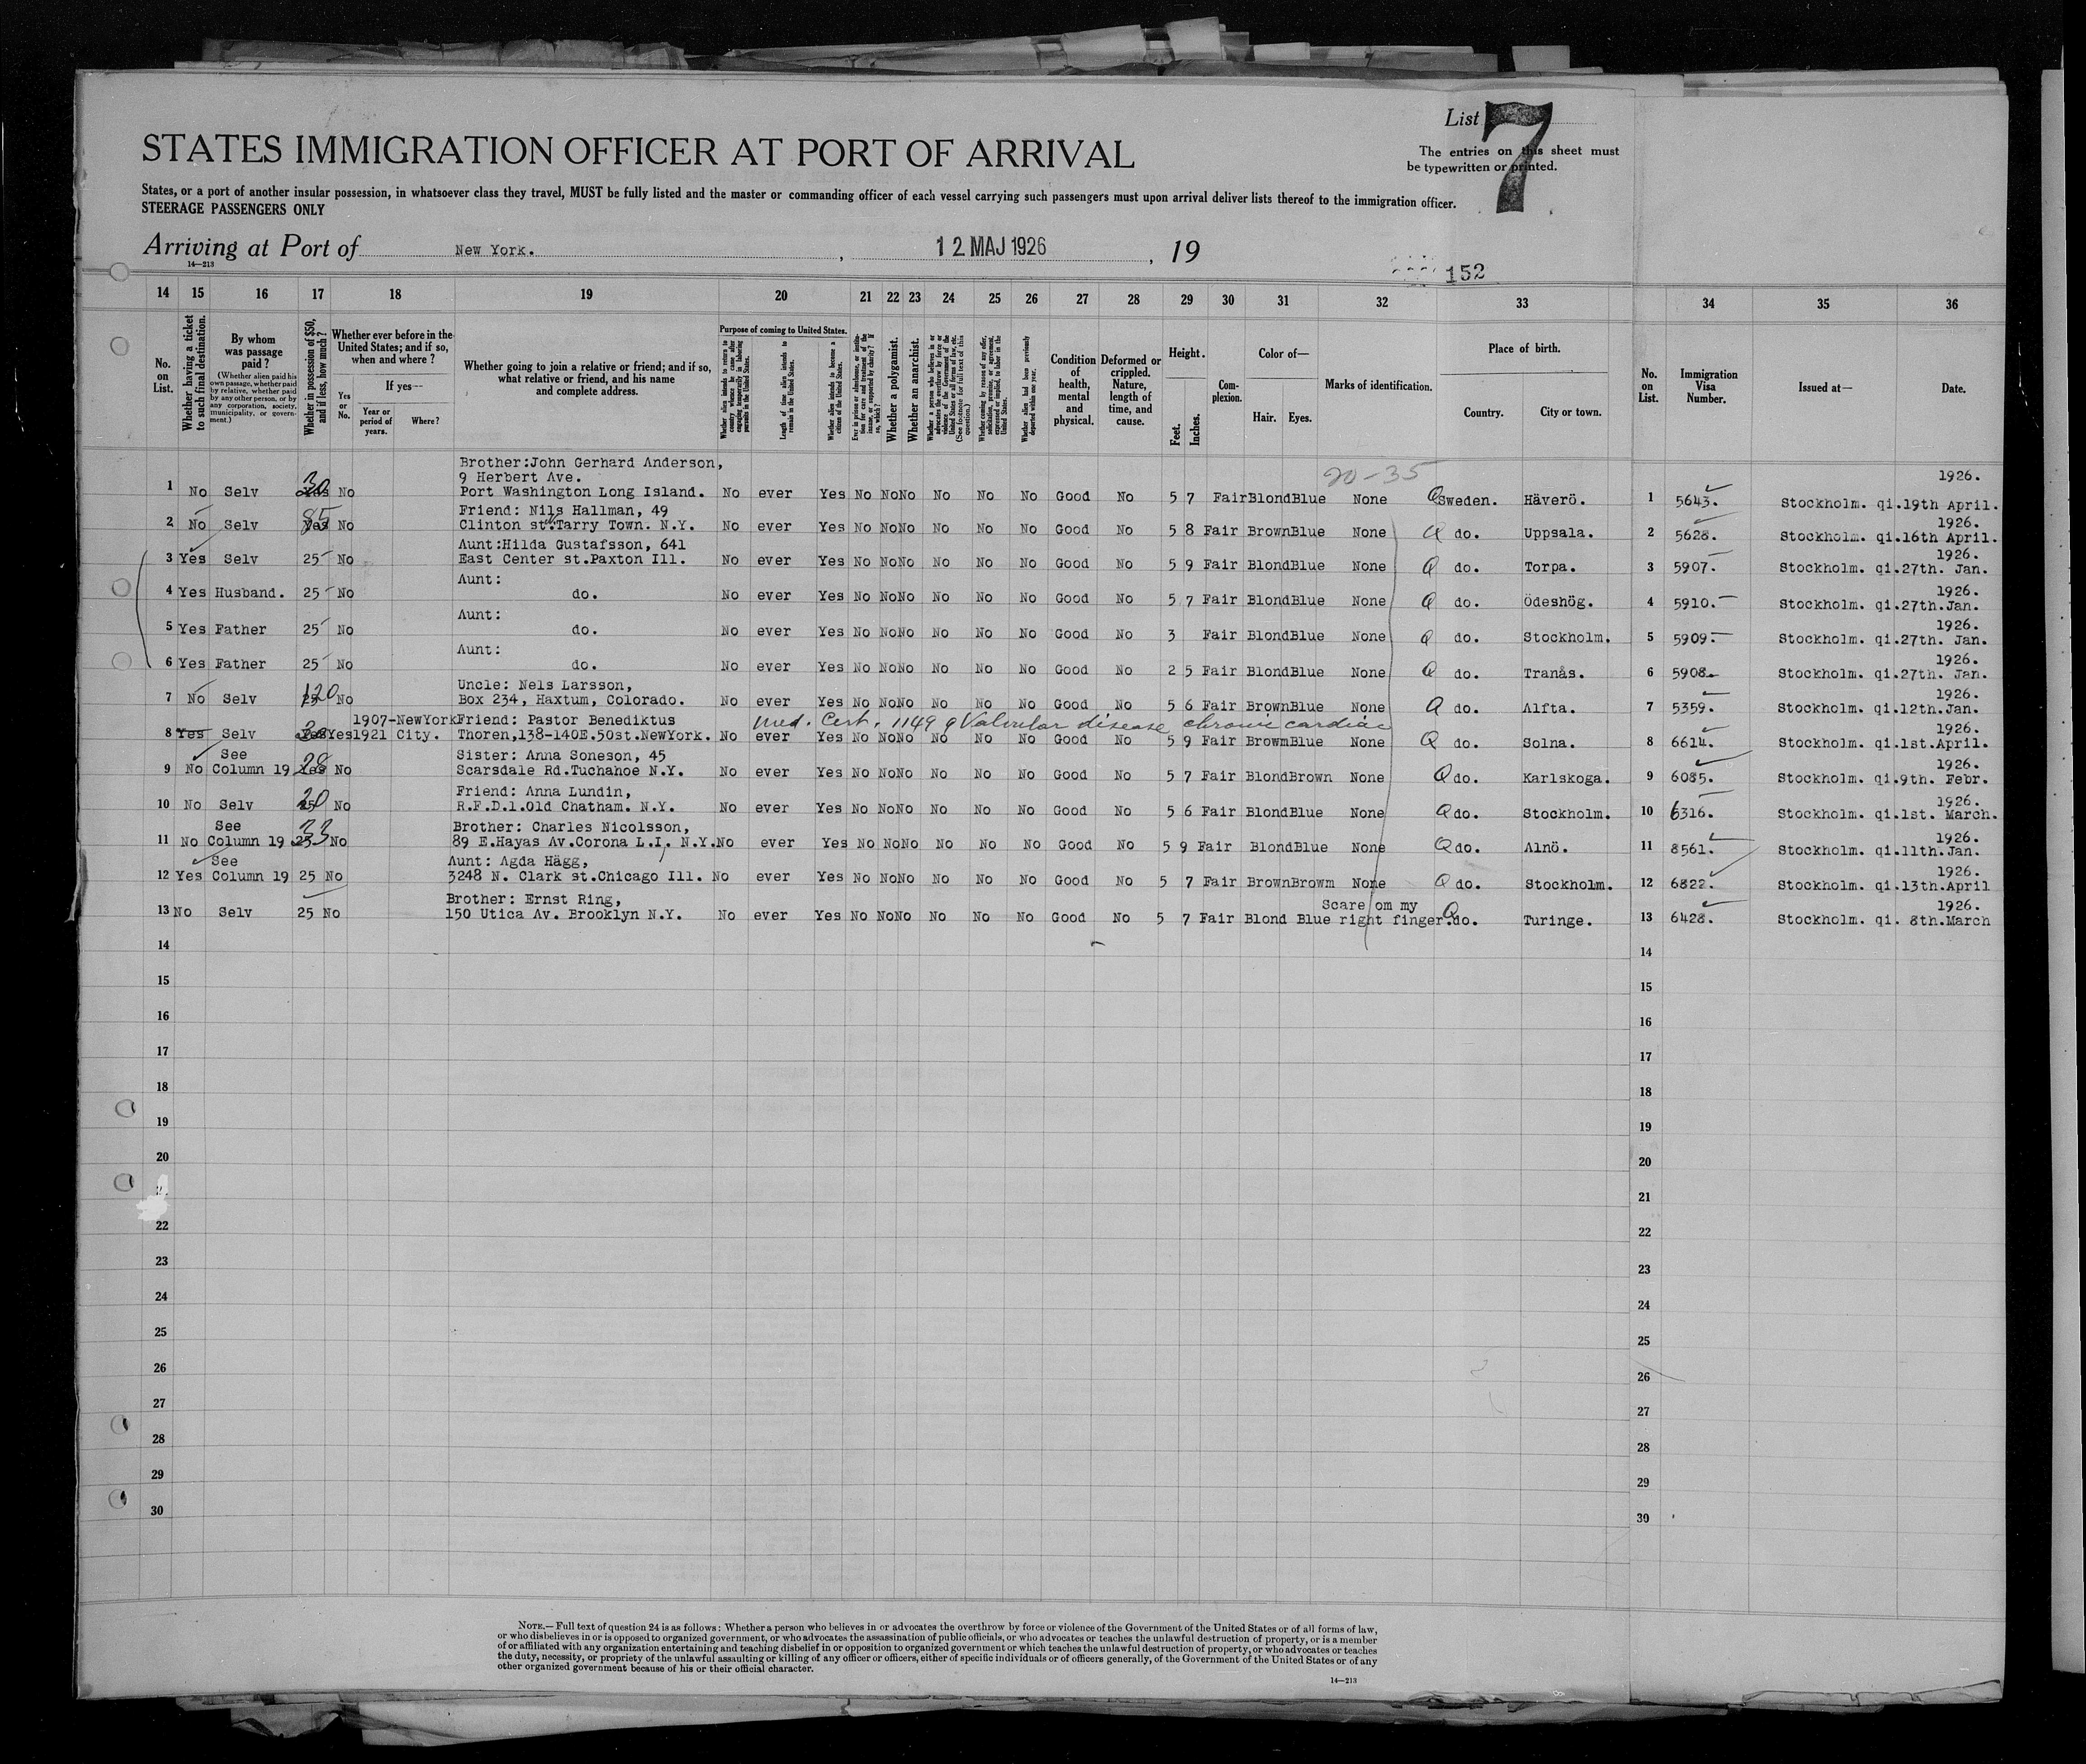 List 7
STATES IMMIGRATION OFFICER AT PORT OF ARRIVAL
The entries on this sheet must
be typewritten or printed.
States, or a port of another insular possession, in whatsoever class they travel, MUST be fully listed and the master or commanding officer of each vessel carrying such passengers must upon arrival deliver lists thereof to the immigration officer.
STEERAGE PASSENGERS ONLY
Arriving at Port of New York. , 12 MAJ 1926 , 19
14—213
152
14 15 16 17 18 19 20 21 22 23 24 25 26 27 28 29 30 31 32 33 34 35 36
No. on List.
Whether having a ticket to such final destination.
By whom was passage paid?
(Whether alien paid his own passage, whether paid by relative, whether paid by any other person, or by any corporation, society, municipality, or government.)
Whether in possession of $50, and if less, how much?
Whether ever before in the United States; and if so, when and where?
Yes or No.
If yes—
Year or period of years.
Where?
Whether going to join a relative or friend; and if so, what relative or friend, and his name and complete address.
Purpose of coming to United States.
Whether alien intends to return to country whence he came after engaging temporarily in laboring pursuits in the United States.
Length of time alien intends to remain in the United States.
Whether alien intends to become a citizen of the United States.
Whether a polygamist.
Whether an anarchist.
Condition of health, mental and physical.
Deformed or crippled. Nature, length of time, and cause.
Height.
Feet. Inches.
Complexion.
Color of—
Hair. Eyes.
Marks of identification.
Place of birth.
Country. City or town.
No. on List.
Immigration Visa Number.
Issued at—
Date.
20-35
Brother:John Gerhard Anderson,
9 Herbert Ave. 1926.
1 No Selv 30 No Port Washington Long Island. No ever Yes No No No No No No Good No 5 7 Fair Blond Blue None Q Sweden. Häverö. 1 5643. Stockholm. qi. 19th April.
Friend: Nils Hallman, 49 1926.
2 No Selv 85 Yes No Clinton st. Tarry Town. N.Y. No ever Yes No No No No No No Good No 5 8 Fair Brown Blue None Q do. Uppsala. 2 5628. Stockholm. qi. 16th April.
Aunt:Hilda Gustafsson, 641 1926.
3 Yes Selv 25 No East Center st.Paxton Ill. No ever Yes No No No No No No Good No 5 9 Fair Blond Blue None Q do. Torpa. 3 5907. Stockholm. qi. 27th. Jan.
Aunt: 1926.
4 Yes Husband. 25 No do. No ever Yes No No No No No No Good No 5 7 Fair Blond Blue None Q do. Ödeshög. 4 5910. Stockholm. qi. 27th.Jan.
Aunt: 1926.
5 Yes Father 25 No do. No ever Yes No No No No No No Good No 3 Fair Blond Blue None Q do. Stockholm. 5 5909. Stockholm. qi. 27th. Jan.
Aunt: 1926.
6 Yes Father 25 No do. No ever Yes No No No No No No Good No 2 5 Fair Blond Blue None Q do. Tranås. 6 5908. Stockholm. qi. 27th. Jan.
Uncle: Nels Larsson, 1926.
7 No Selv 25 120 No Box 234, Haxtum, Colorado. No ever Yes No No No No No No Good No 5 6 Fair Brown Blue None Q do. Alfta. 7 5359. Stockholm. qi. 12th.Jan.
1907-NewYork Friend: Pastor Benediktus Med. Cert. 1149 g Valvular disease chronic cardiac 1926.
8 Yes Selv Yes Yes 1921 City. Thoren,138-140E.50st.NewYork. No ever Yes No No No No No No Good No 5 9 Fair Browm Blue None Q do. Solna. 8 6614. Stockholm. qi. 1st.April.
See Sister: Anna Soneson, 45 1926.
9 No Column 19 28 Yes No Scarsdale Rd.Tuchahoe N.Y. No ever Yes No No No No No No Good No 5 7 Fair Blond Brown None Q do. Karlskoga. 9 6085. Stockholm. qi. 9th. Febr.
Friend: Anna Lundin, 1926.
10 No Selv 25 20 No R.F.D.1.Old Chatham. N.Y. No ever Yes No No No No No No Good No 5 6 Fair Blond Blue None Q do. Stockholm. 10 6316. Stockholm. qi. 1st. March.
See Brother: Charles Nicolsson, 1926.
11 No Column 19 25 33 No 89 E.Hayas Av.Corona L.I. N.Y. No ever Yes No No No No No No Good No 5 9 Fair Blond Blue None Q do. Alnö. 11 8561. Stockholm. qi. 11th.Jan.
See Aunt: Agda Hägg, 1926.
12 Yes Column 19 25 No 3248 N. Clark st.Chicago Ill. No ever Yes No No No No No No Good No 5 7 Fair Brown Browm None Q do. Stockholm. 12 6822. Stockholm. qi. 13th.April
Brother: Ernst Ring, Scare om my 1926.
13 No Selv 25 No 150 Utica Av. Brooklyn N.Y. No ever Yes No No No No No No Good No 5 7 Fair Blond Blue right finger. Q do. Turinge. 13 6428. Stockholm. qi. 8th.March
14 14
15 15
16 16
17 17
18 18
19 19
20 20
21
22 22
23 23
24 24
25 25
26 26
27 27
28 28
29 29
30 30
NOTE.—Full text of question 24 is as follows: Whether a person who believes in or advocates the overthrow by force or violence of the Government of the United States or of all forms of law,
or who disbelieves in or is opposed to organized government, or who advocates the assassination of public officials, or who advocates or teaches the unlawful destruction of property, or is a member
of or affiliated with any organization entertaining and teaching disbelief in or opposition to organized government or which teaches the unlawful destruction of property, or who advocates or teaches
the duty, necessity, or propriety of the unlawful assaulting or killing of any officer or officers, either of specific individuals or of officers generally, of the Government of the United States or of any
other organized government because of his or their official character.
14—213